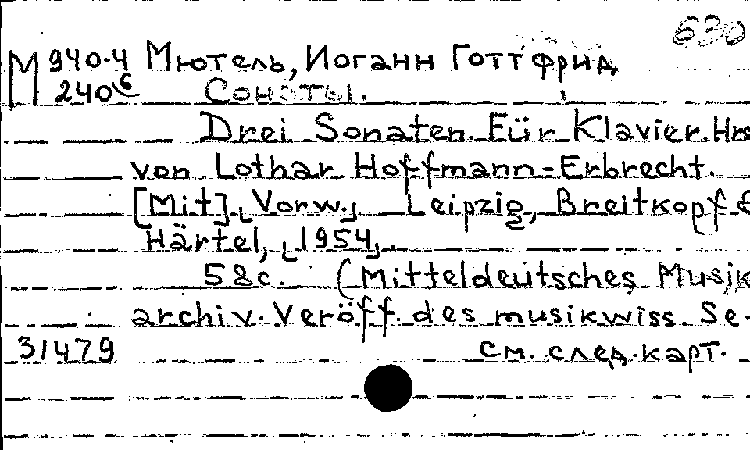 630
М 940-4 Мютель, Иоганн Готтфрид
240 6 Сонаты.
Drei Sonaten. Für Klavier. Hrs
von Lothar Hoffmann-Erbrecht.
[Mit] Vorw. Leipzig, Breitkopf &
Härtel, 1954.
58 с. (Mitteldeutsches Musik
archiv. Veröff. des musikwiss. Se-
31479 см. след. карт.